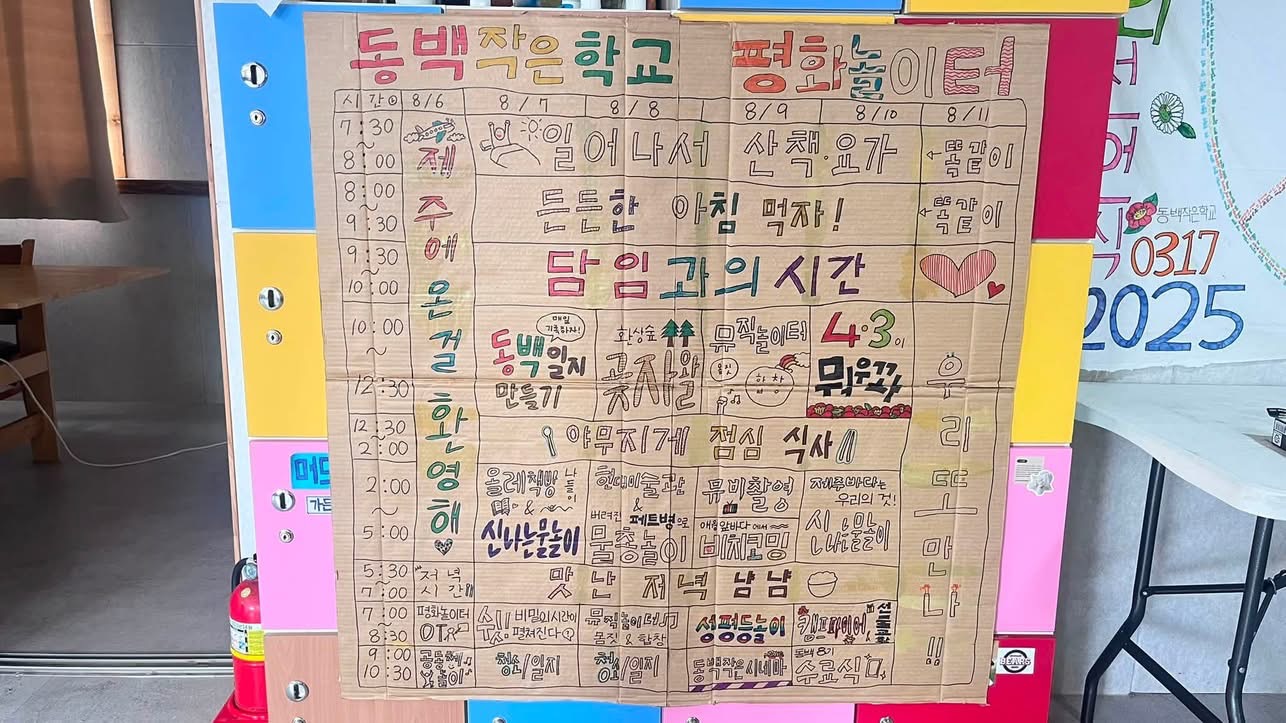 동백작은학교 평화놀이터
시간 8/6 8/7 8/8 8/9 8/10 8/11
7:30 ~ 8:00 일어나서 산책·요가 ←똑같이
8:00 ~ 9:30 든든한 아침 먹자! ←똑같이
9:30 ~ 10:00 담임과의 시간
제주에 온 걸 환영해
10:00 ~ 12:30
매일 기록하자!
동백일지 만들기
화상숲 곶자왈
뮤직놀이터 몸짓 합창
4·3이 뭐우꽈
12:30 ~ 2:00 야무지게 점심 식사
2:00 ~ 5:00
올레책방 나들이 & 신나는물놀이
현대미술관 & 버려진 페트병으로 물총놀이
뮤비촬영
애월 앞바다에서 비치코밍
제주바다는 우리의 것!
신나는물놀이
5:30 ~ 7:00 저녁시간 맛난 저녁 냠냠
7:00 ~ 8:30
평화놀이터 OT
쉿! 비밀의시간이 펼쳐진다
뮤직놀이터 몸짓 & 합창
성평등놀이
캠프파이어,
9:00 ~ 10:30
공동체놀이
청소/일지
청소/일지
동백작은시네마
동백 8기 수료식
우리 또 만나!!
서
어
직
동백작은학교
0317
2025
BEARS